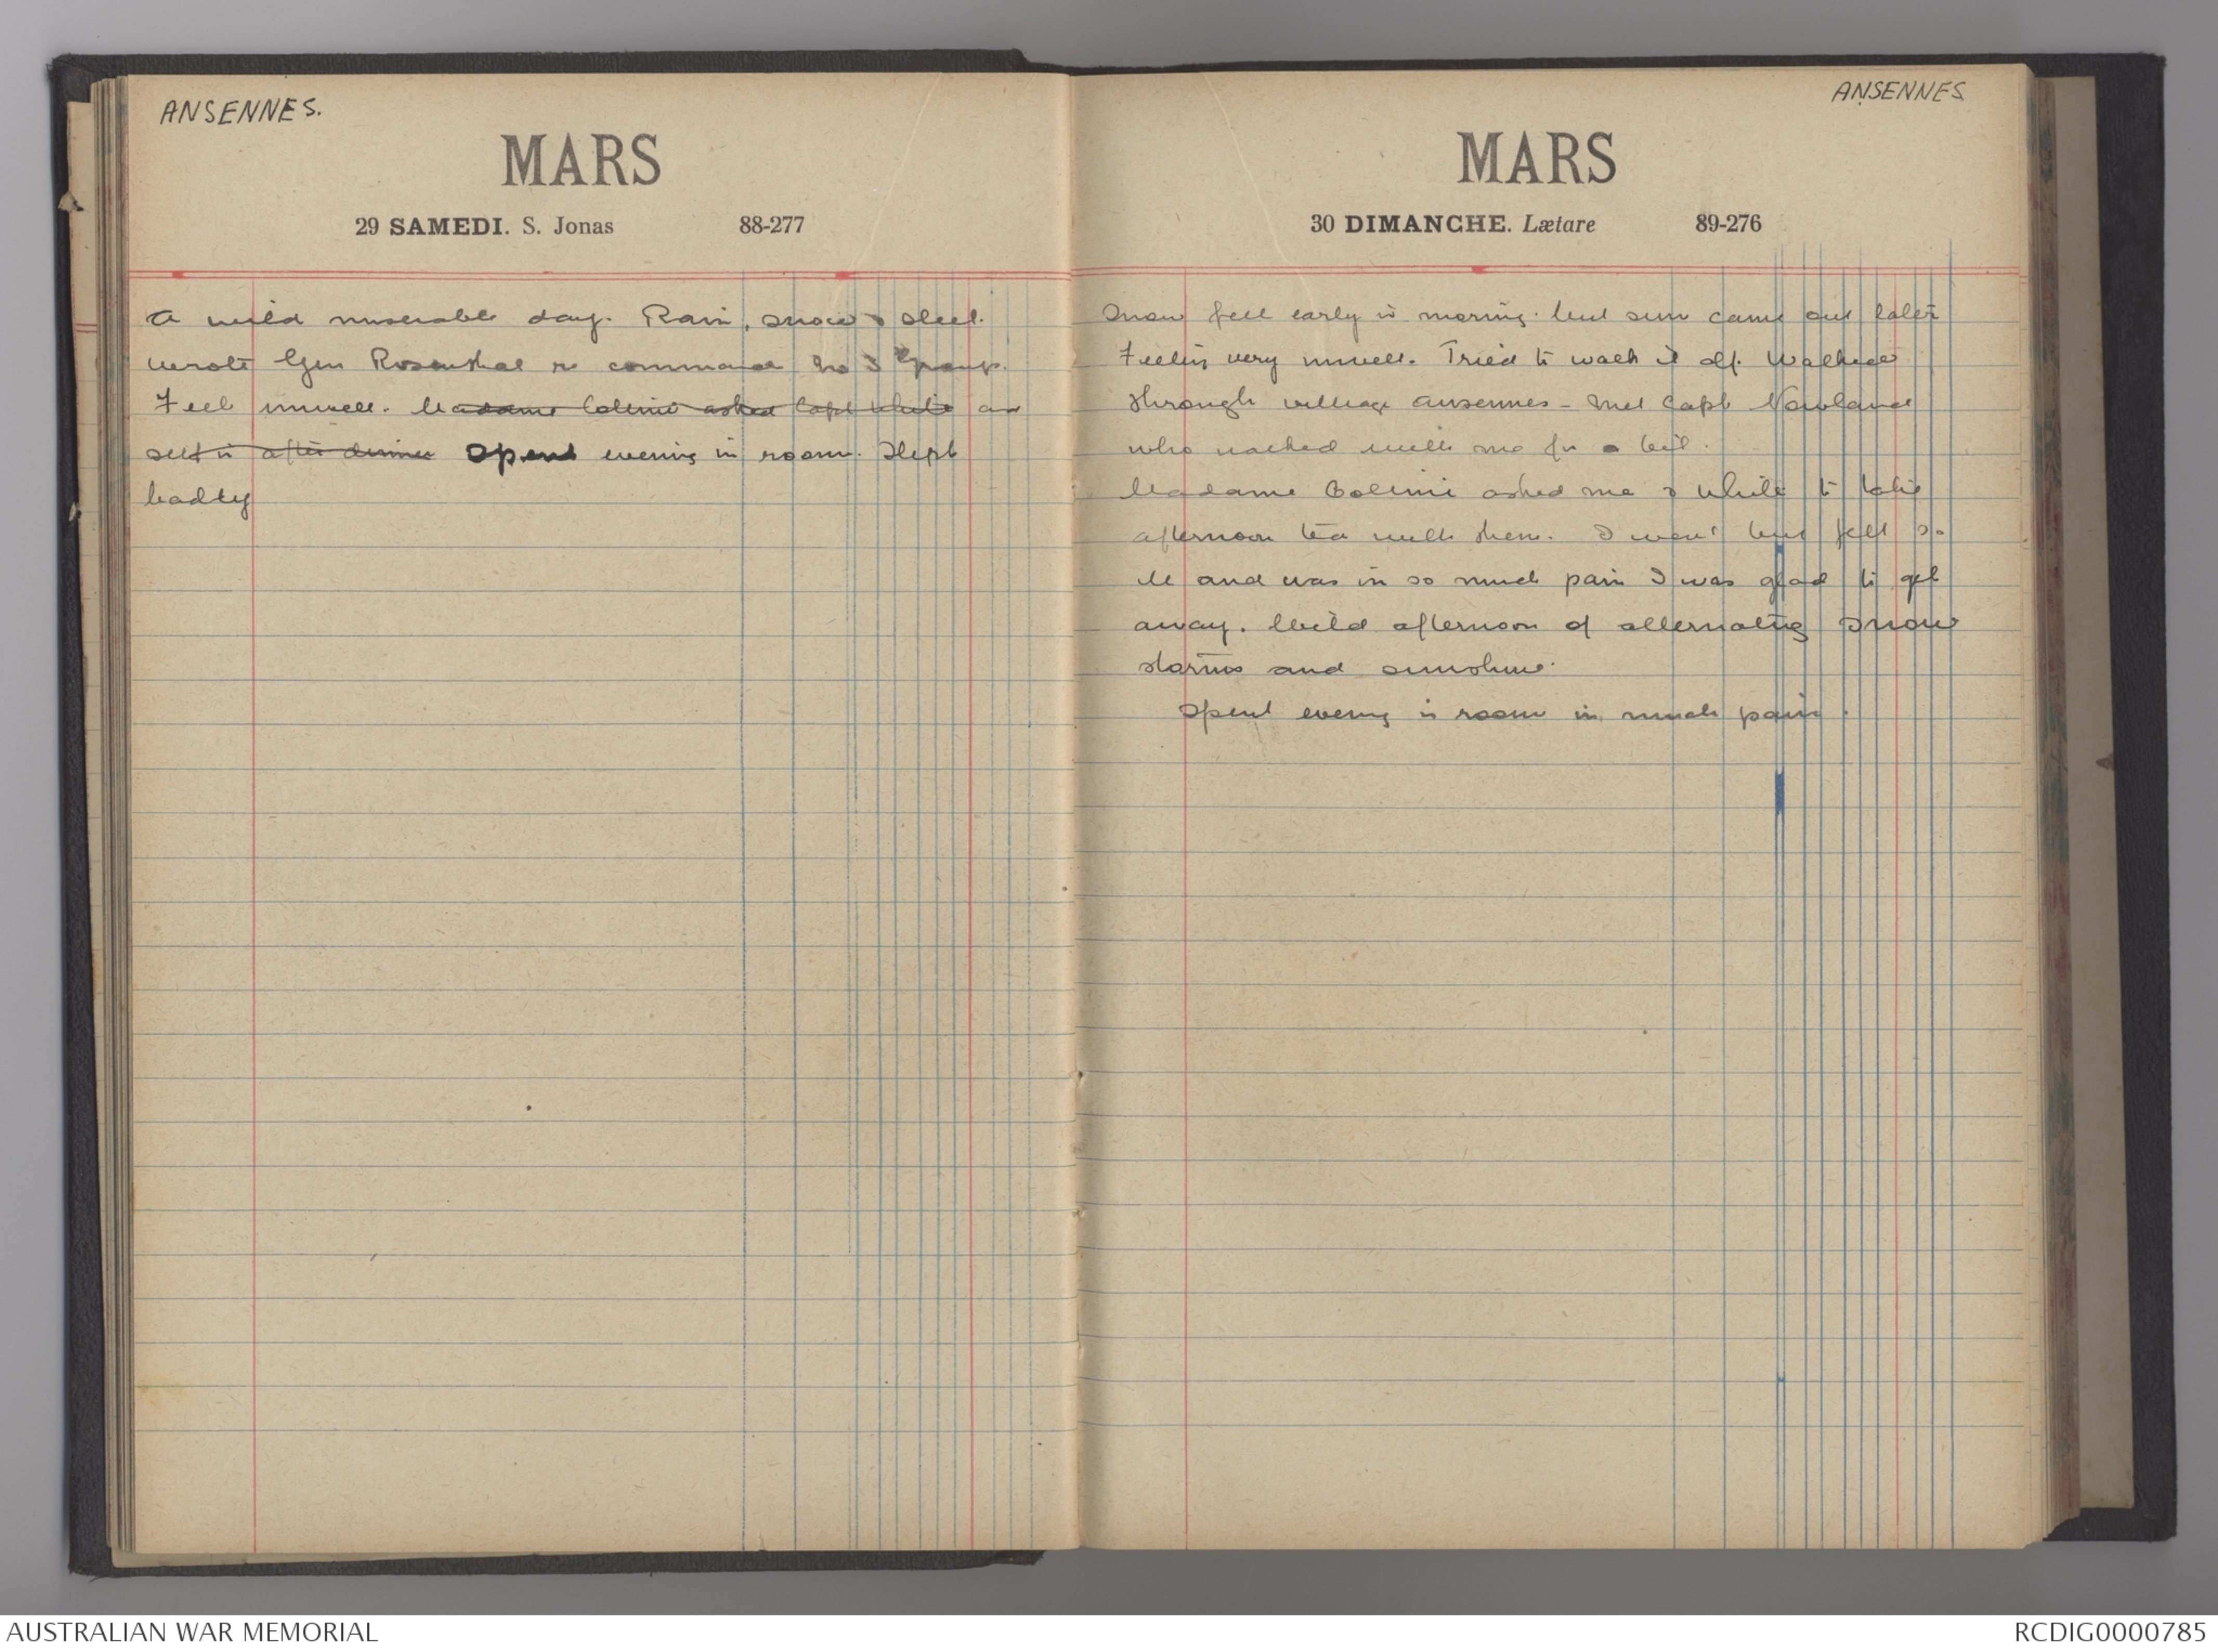 ANSENNES.
MARS
29 SAMEDI. S. Jonas 88-277
A wild miserable day. Rain, snow & sleet.
Wrote Gen Rosenthal re command No 3 Group.
Feel unwell. Madame Collinie asked Capt White an
self in after dinner Spent evening in room. Slept
badly
ANSENNES
MARS
30 DIMANCHE. Lætare 89-276
Snow fell early in morning but sun came out later
Feeling very unwell. Tried to walk it off. Walked
through village Ansennes - Met Capt Nowland
who walked with me for a bit.
Madame Collinie asked me & White to take
afternoon tea with them. I went but felt so
ill and was in so much pain I was glad to get
away. Wild afternoon of alternating snow
storms and sunshine.
Spent evening in room in much pain.
AUSTRALIAN WAR MEMORIAL
RCDIG0000785